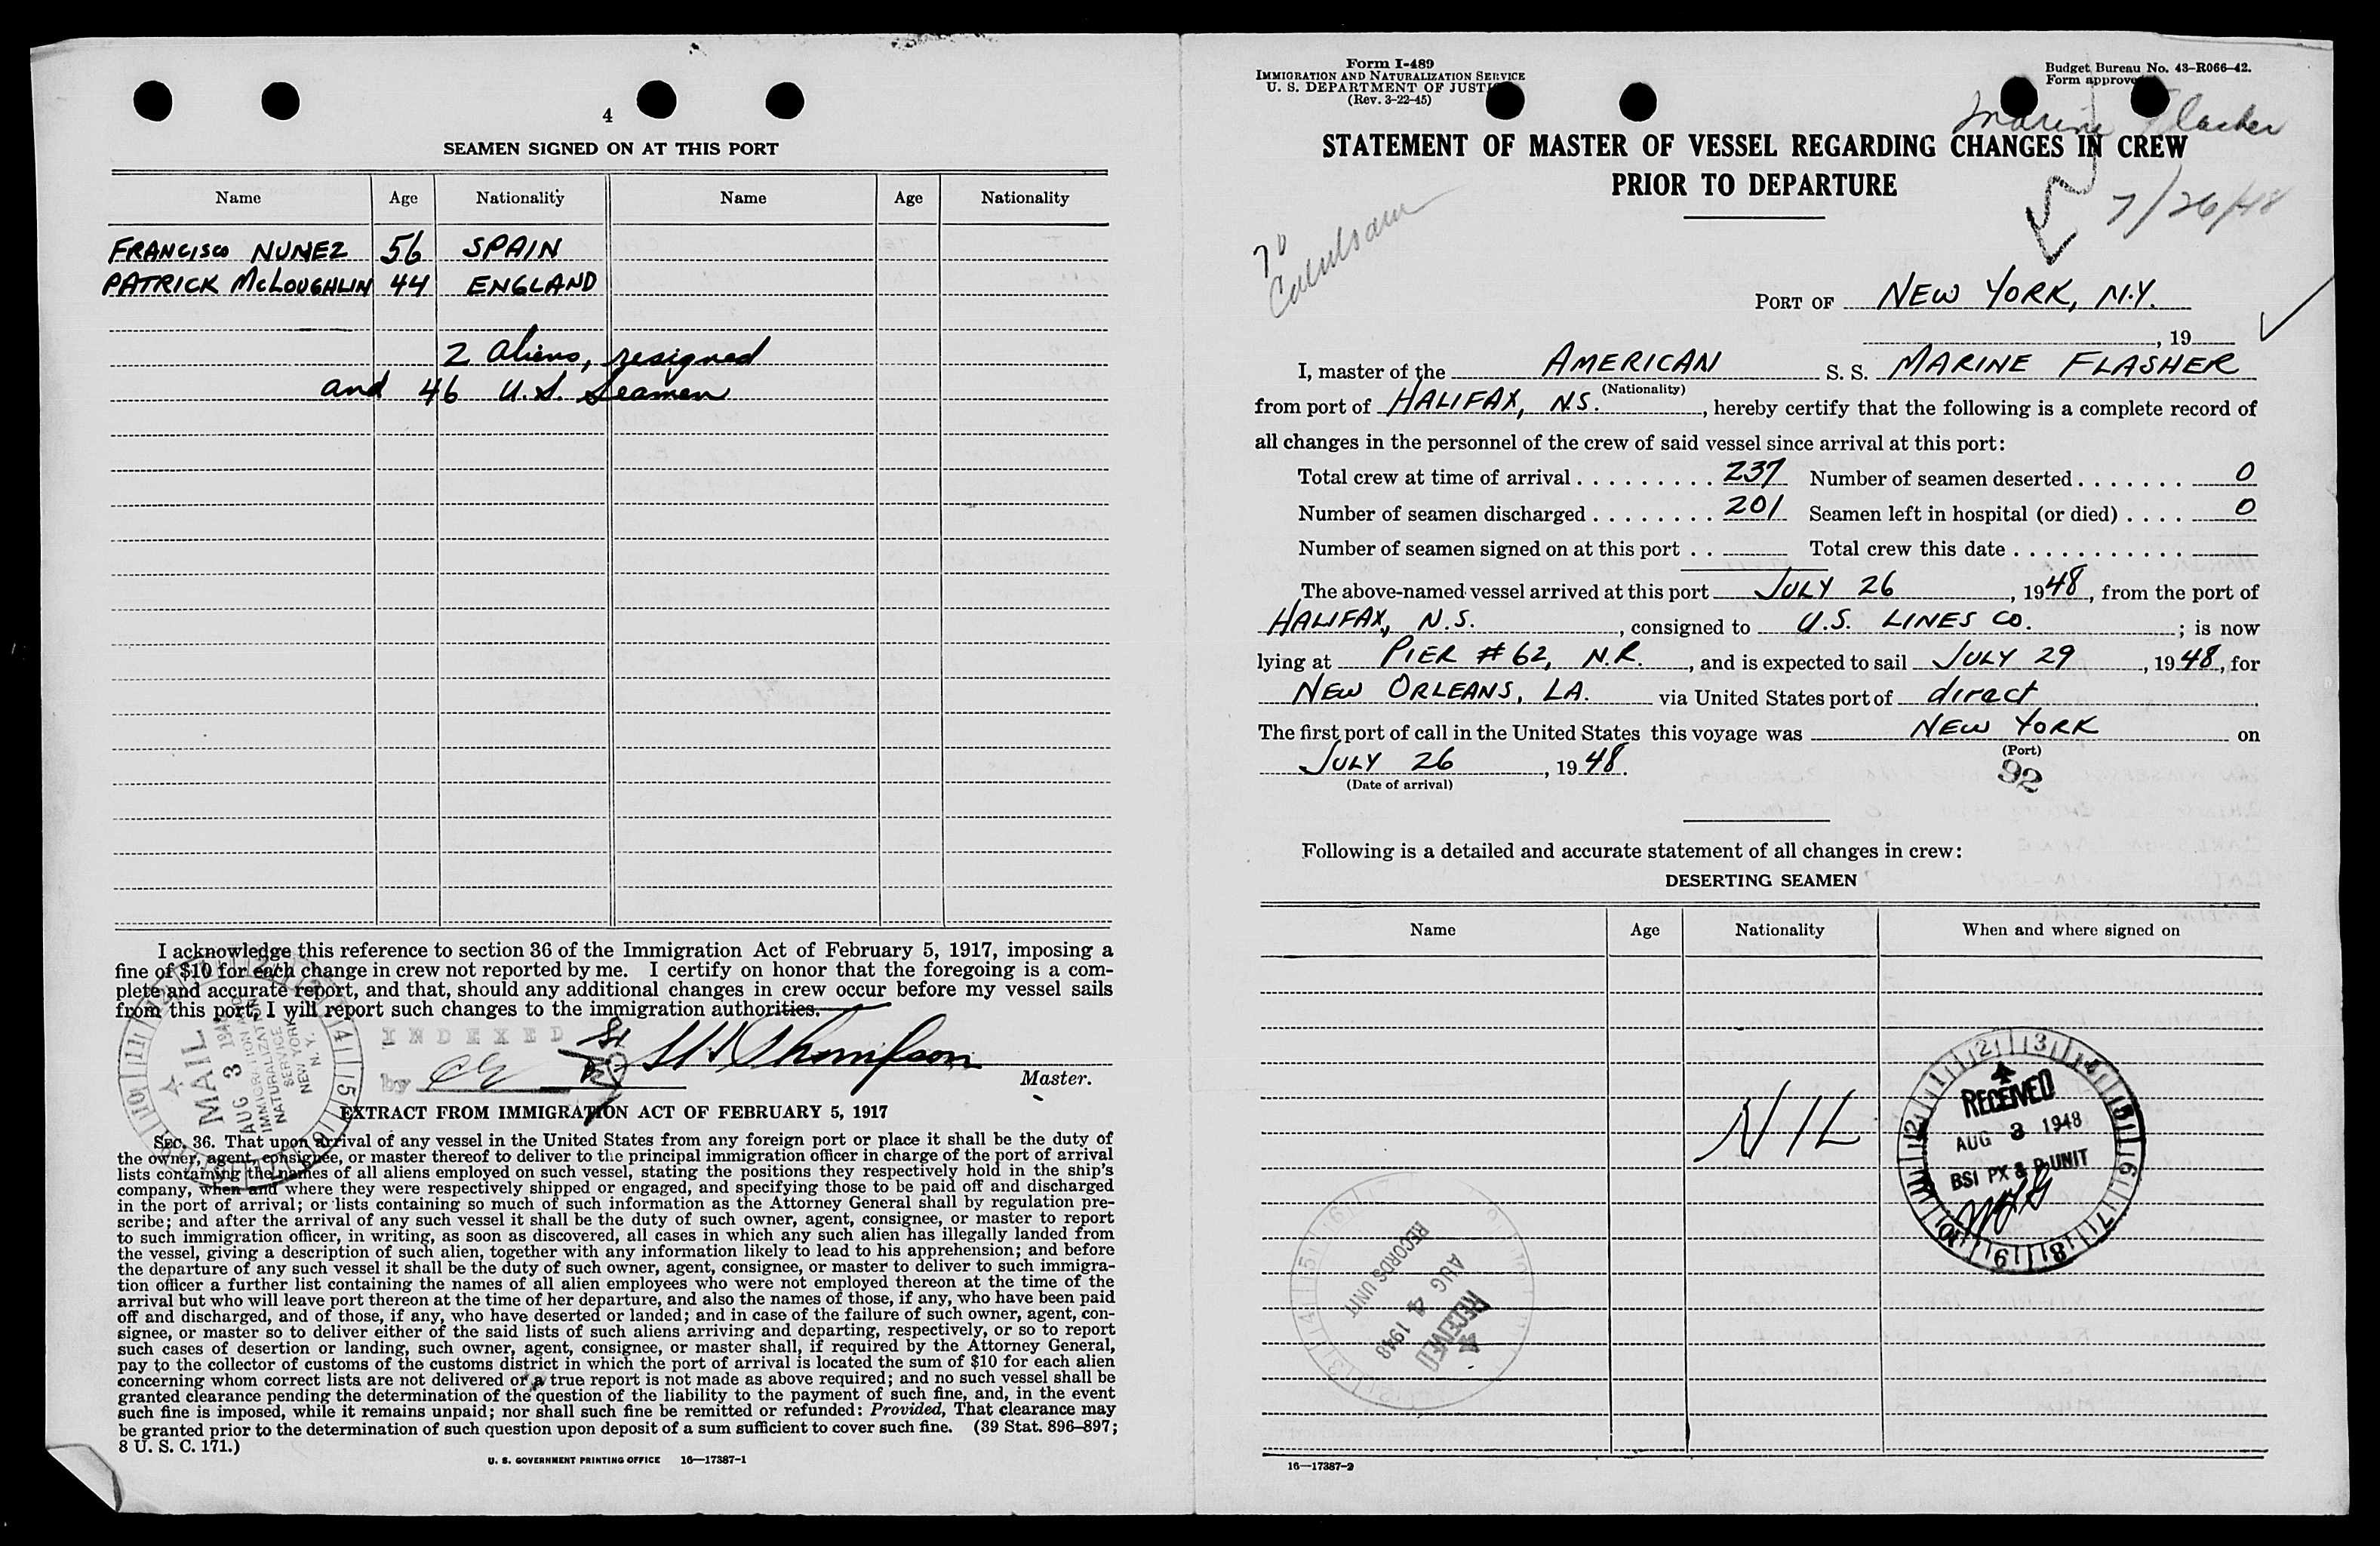 4
SEAMEN SIGNED ON AT THIS PORT
Name Age Nationality Name Age Nationality
FRANCISCO NUNEZ 56 SPAIN
PATRICK McLOUGHLIN 44 ENGLAND
2 aliens, resigned
and 46 U.S. Seamen
I acknowledge this reference to section 36 of the Immigration Act of February 5, 1917, imposing a
fine of $10 for each change in crew not reported by me. I certify on honor that the foregoing is a com-
plete and accurate report, and that, should any additional changes in crew occur before my vessel sails
from this port, I will report such changes to the immigration authorities.
INDEXED
by
Thompson
Master.
MAIL
AUG 3 1948
IMMIGRATION AND
NATURALIZATION
SERVICE
NEW YORK
N. Y.
EXTRACT FROM IMMIGRATION ACT OF FEBRUARY 5, 1917
SEC. 36. That upon arrival of any vessel in the United States from any foreign port or place it shall be the duty of
the owner, agent, consignee, or master thereof to deliver to the principal immigration officer in charge of the port of arrival
lists containing the names of all aliens employed on such vessel, stating the positions they respectively hold in the ship's
company, when and where they were respectively shipped or engaged, and specifying those to be paid off and discharged
in the port of arrival; or lists containing so much of such information as the Attorney General shall by regulation pre-
scribe; and after the arrival of any such vessel it shall be the duty of such owner, agent, consignee, or master to report
to such immigration officer, in writing, as soon as discovered, all cases in which any such alien has illegally landed from
the vessel, giving a description of such alien, together with any information likely to lead to his apprehension; and before
the departure of any such vessel it shall be the duty of such owner, agent, consignee, or master to deliver to such immigra-
tion officer a further list containing the names of all alien employees who were not employed thereon at the time of the
arrival but who will leave port thereon at the time of her departure, and also the names of those, if any, who have been paid
off and discharged, and of those, if any, who have deserted or landed; and in case of the failure of such owner, agent, con-
signee, or master so to deliver either of the said lists of such aliens arriving and departing, respectively, or so to report
such cases of desertion or landing, such owner, agent, consignee, or master shall, if required by the Attorney General,
pay to the collector of customs of the customs district in which the port of arrival is located the sum of $10 for each alien
concerning whom correct lists are not delivered or a true report is not made as above required; and no such vessel shall be
granted clearance pending the determination of the question of the liability to the payment of such fine, and, in the event
such fine is imposed, while it remains unpaid; nor shall such fine be remitted or refunded: Provided, That clearance may
be granted prior to the determination of such question upon deposit of a sum sufficient to cover such fine. (39 Stat. 896–897;
8 U. S. C. 171.)
U. S. GOVERNMENT PRINTING OFFICE 16—17387-1
Form I-489
IMMIGRATION AND NATURALIZATION SERVICE
U. S. DEPARTMENT OF JUSTI
(Rev. 3-22-45)
Budget Bureau No. 43-R066-42.
Form approve
Marine Flasher
7/26/48
STATEMENT OF MASTER OF VESSEL REGARDING CHANGES IN CREW
PRIOR TO DEPARTURE
PORT OF NEW YORK, N.Y.
, 19
I, master of the AMERICAN S. S. MARINE FLASHER
(Nationality)
from port of HALIFAX, N.S. , hereby certify that the following is a complete record of
all changes in the personnel of the crew of said vessel since arrival at this port:
Total crew at time of arrival 237 Number of seamen deserted 0
Number of seamen discharged 201 Seamen left in hospital (or died) 0
Number of seamen signed on at this port Total crew this date
The above-named vessel arrived at this port JULY 26 , 1948, from the port of
HALIFAX, N.S. , consigned to U.S. LINES CO. ; is now
lying at PIER #62, N.R. , and is expected to sail JULY 29 , 1948, for
NEW ORLEANS, LA. via United States port of direct
The first port of call in the United States this voyage was NEW YORK on
(Port)
JULY 26 , 1948.
(Date of arrival)
92
Following is a detailed and accurate statement of all changes in crew:
DESERTING SEAMEN
Name Age Nationality When and where signed on
NIL
RECEIVED
AUG 3 1948
BSI PX & P UNIT
RECEIVED
AUG 4 1948
RECORDS UNIT
16—17387-2